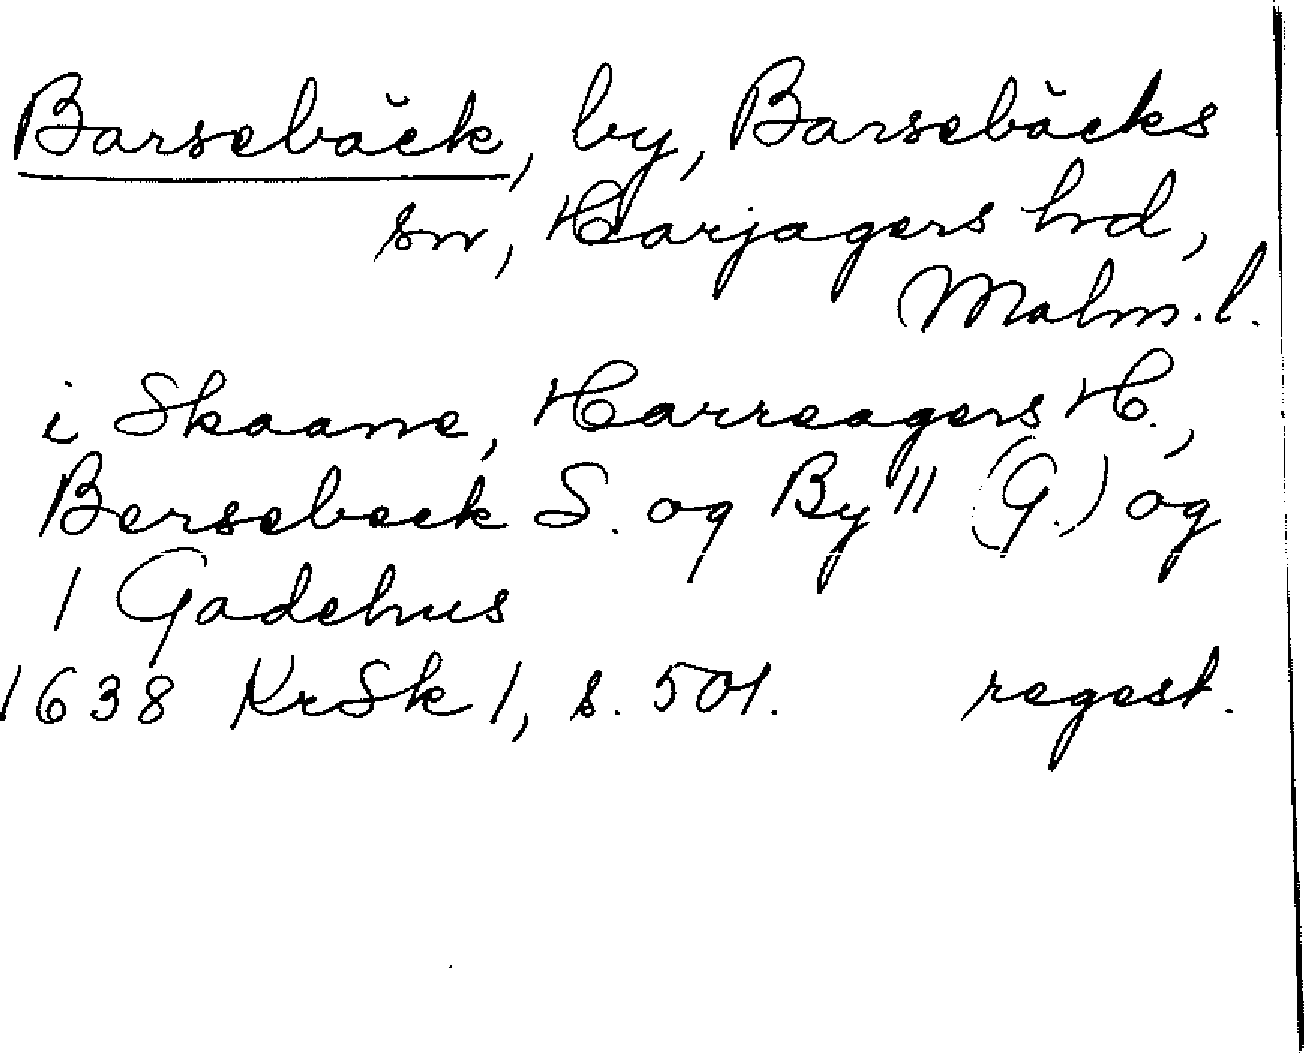 Barsebäck, by, Barsebäcks
sn, Harjagers hd,
Malm. l.
i Skaane, Harreagers H.,
Bersebeck S. og By 11 (G.) og
1 Gadehus
1638 KrSk 1, s. 501. regest.